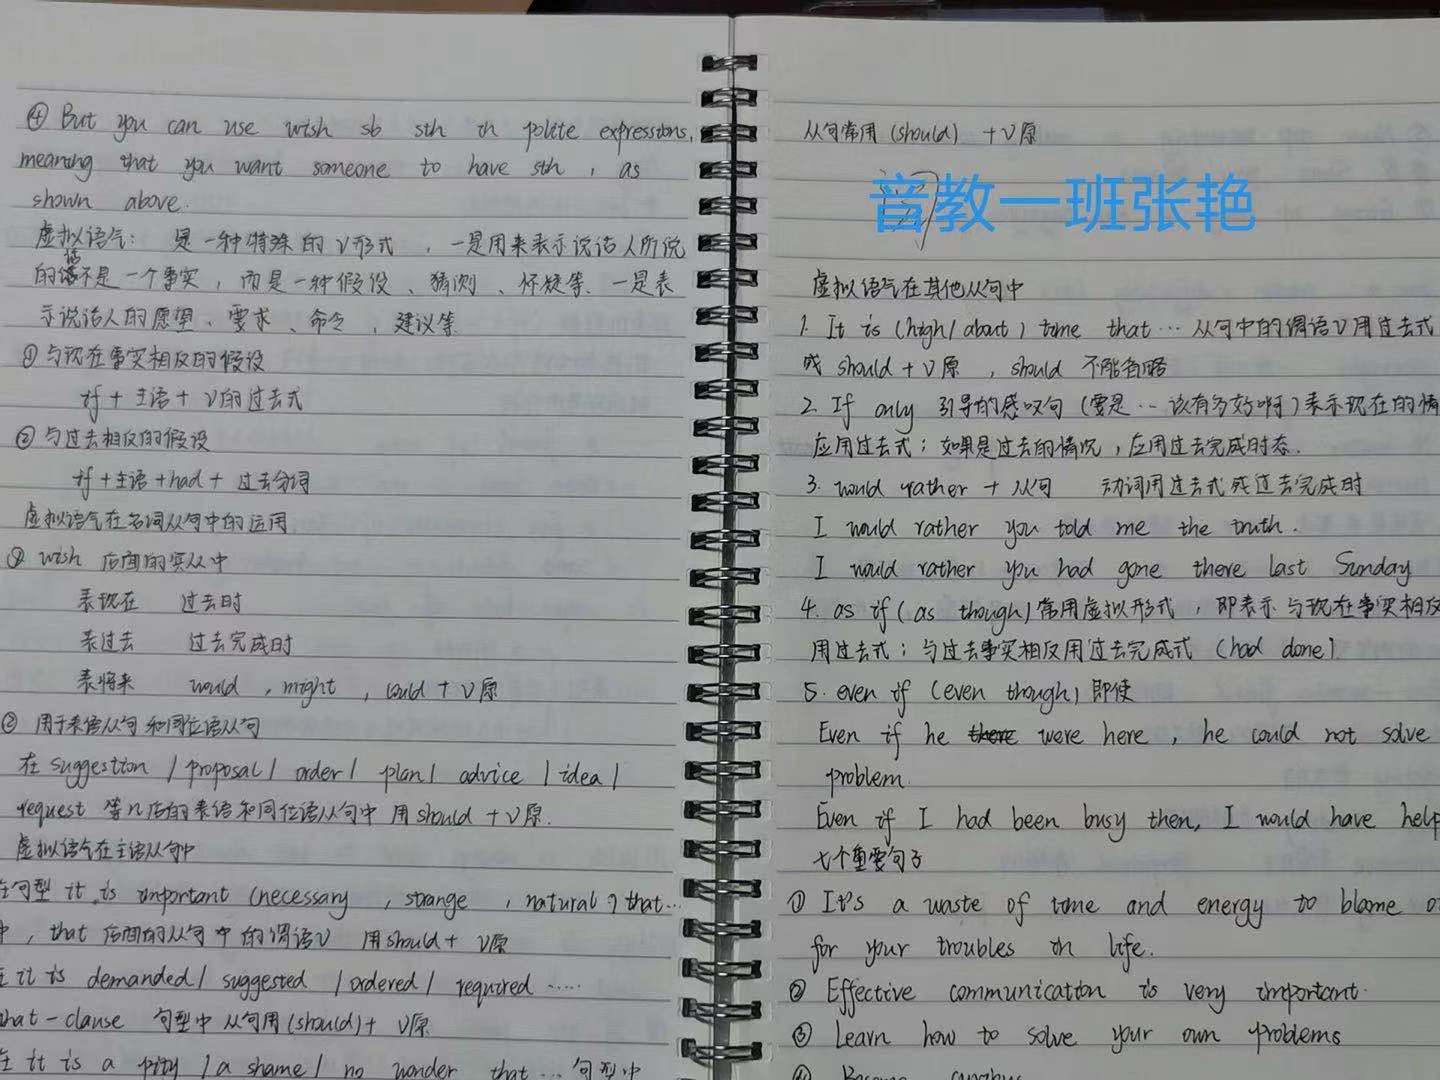 ④ But you can use wish sb sth in polite expressions,
meaning that you want someone to have sth, as
shown above.
虚拟语气: 是一种特殊的V形式,一是用来表示说话人所说
的话不是一个事实,而是一种假设、猜测、怀疑等.一是表
示说话人的愿望、要求、命令,建议等
①与现在事实相反的假设
if+主语+V的过去式
②与过去相反的假设
if+主语+had+过去分词
虚拟语气在名词从句中的运用
① wish 后面的宾从中
表现在 过去时
表过去 过去完成时
表将来 would, might, could+V原
② 用于表语从句和同位语从句
在suggestion/proposal/order/plan/advice/idea/
request等n后的表语和同位语从句中用should+V原.
虚拟语气在主语从句中
在句型it is important (necessary, strange, natural) that…
中,that后面的从句中的谓语V 用should+V原
在it is demanded/suggested/ordered/required……
that-clause 句型中从句用(should)+V原
在it is a pity/a shame/no wonder that…句型中
从句常用(should)+V原
音教一班张艳
虚拟语气在其他从句中
1. It is (high/about) time that…从句中的谓语V用过去式
或should+V原,should不能省略
2. If only 引导的感叹句(要是…该有多好啊)表示现在的情
应用过去式;如果是过去的情况,应用过去完成时态.
3. would rather+从句 动词用过去式或过去完成时
I would rather you told me the truth.
I would rather you had gone there last Sunday
4. as if (as though)常用虚拟形式,即表示与现在事实相反
用过去式;与过去事实相反用过去完成式 (had done).
5. even if (even though)即使
Even if he there were here, he could not solve
problem.
Even if I had been busy then, I would have help
七个重要句子
① It's a waste of time and energy to blame o
for your troubles in life.
② Effective communication is very important.
③ Learn how to solve your own problems
④ Become